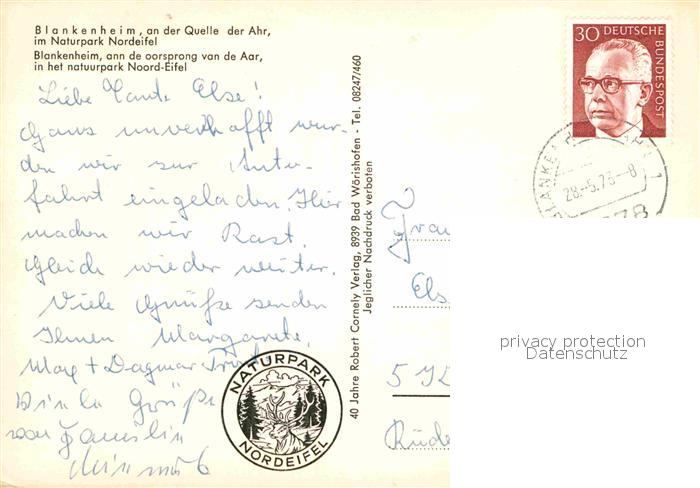 Blankenheim, an der Quelle der Ahr,
im Naturpark Nordeifel
Blankenheim, ann de oorsprong van de Aar,
in het natuurpark Noord-Eifel
Liebe Tante Else!
Ganz unverhofft wur-
den wir zur Auto-
fahrt eingeladen. Hier
machen wir Rast,
gleich wieder weiter.
Viele Grüße senden
Ihnen Margarete,
Max + Dagmar
Viele Grüße
von Familie
NATURPARK
NORDEIFEL
40 Jahre Robert Cornely Verlag, 8939 Bad Wörishofen - Tel. 08247/460
Jeglicher Nachdruck verboten
30 DEUTSCHE
BUNDESPOST
28.-5.73-8
Frau
Els
privacy protection
Datenschutz
Rüde